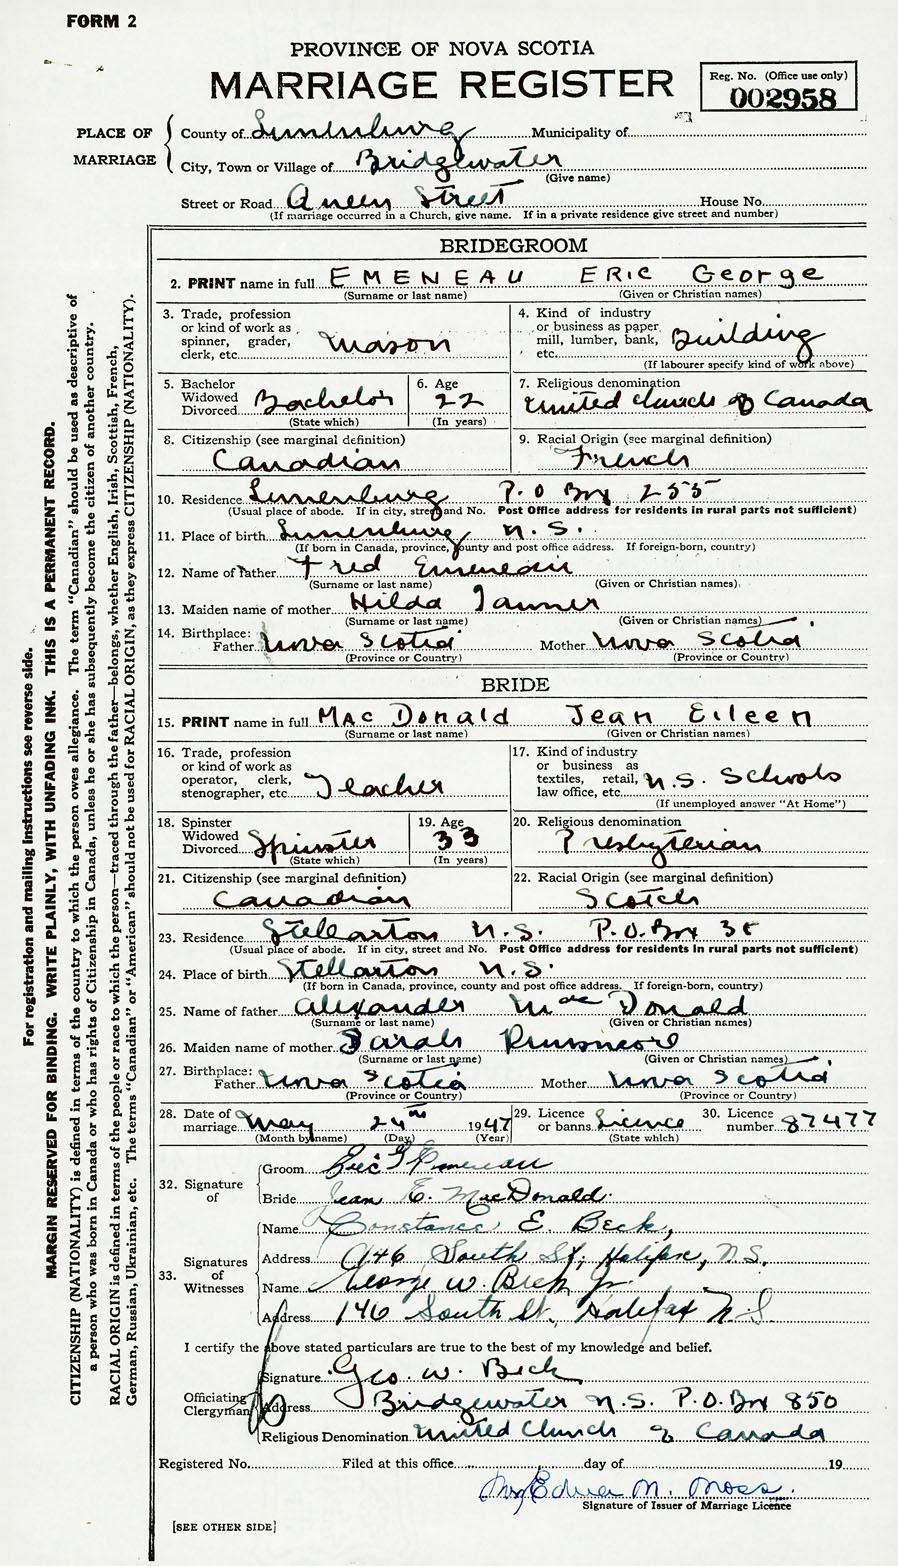 FORM 2
PROVINCE OF NOVA SCOTIA
MARRIAGE REGISTER
Reg. No. (Office use only)
002958
PLACE OF MARRIAGE
County of Lunenburg Municipality of
City, Town or Village of Bridgewater
(Give name)
Street or Road Queen Street House No.
(If marriage occurred in a Church, give name. If in a private residence give street and number)
BRIDEGROOM
2. PRINT name in full EMENEAU ERIC George
(Surname or last name) (Given or Christian names)
3. Trade, profession
or kind of work as
spinner, grader,
clerk, etc. Mason
4. Kind of industry
or business as paper
mill, lumber, bank,
etc. Building
(If labourer specify kind of work above)
5. Bachelor
Widowed
Divorced Bachelor
(State which)
6. Age
22
(In years)
7. Religious denomination
United Church of Canada
8. Citizenship (see marginal definition)
Canadian
9. Racial Origin (see marginal definition)
French
10. Residence Lunenburg P.O Box 255
(Usual place of abode. If in city, street and No. Post Office address for residents in rural parts not sufficient)
11. Place of birth Lunenburg N.S.
(If born in Canada, province, county and post office address. If foreign-born, country)
12. Name of father Fred Emeneau
(Surname or last name) (Given or Christian names)
13. Maiden name of mother Hilda Tanner
(Surname or last name) (Given or Christian names)
14. Birthplace:
Father Nova Scotia Mother Nova Scotia
(Province or Country) (Province or Country)
BRIDE
15. PRINT name in full MacDonald Jean Eileen
(Surname or last name) (Given or Christian names)
16. Trade, profession
or kind of work as
operator, clerk,
stenographer, etc. Teacher
17. Kind of industry
or business as
textiles, retail,
law office, etc. N.S. Schools
(If unemployed answer "At Home")
18. Spinster
Widowed
Divorced Spinster
(State which)
19. Age
33
(In years)
20. Religious denomination
Presbyterian
21. Citizenship (see marginal definition)
Canadian
22. Racial Origin (see marginal definition)
Scotch
23. Residence Stellarton N.S. P.O. Box 38
(Usual place of abode. If in city, street and No. Post Office address for residents in rural parts not sufficient)
24. Place of birth Stellarton N.S.
(If born in Canada, province, county and post office address. If foreign-born, country)
25. Name of father Alexander MacDonald
(Surname or last name) (Given or Christian names)
26. Maiden name of mother Sarah
(Surname or last name) (Given or Christian names)
27. Birthplace:
Father Nova Scotia Mother Nova Scotia
(Province or Country) (Province or Country)
28. Date of
marriage May 24th 1947
(Month by name) (Day) (Year)
29. Licence
or banns Licence
(State which)
30. Licence
number 87477
32. Signature of
Groom Eric G Emeneau
Bride Jean E. MacDonald
33. Signatures of Witnesses
Name Constance E. Beck,
Address 146 South St, Halifax, N.S.
Name George W. Beck Jr.
Address 146 South St., Halifax N.S.
I certify the above stated particulars are true to the best of my knowledge and belief.
Officiating Clergyman
Signature Geo. W. Beck
Address Bridgewater N.S. P.O. Box 850
Religious Denomination United Church of Canada
Registered No. Filed at this office day of 19
Mrs Edna M. Moss.
Signature of Issuer of Marriage Licence
[SEE OTHER SIDE]
For registration and mailing instructions see reverse side.
MARGIN RESERVED FOR BINDING. WRITE PLAINLY, WITH UNFADING INK. THIS IS A PERMANENT RECORD.
CITIZENSHIP (NATIONALITY) is defined in terms of the country to which the person owes allegiance. The term "Canadian" should be used as descriptive of
a person who was born in Canada or who has rights of Citizenship in Canada, unless he or she has subsequently become the citizen of another country.
RACIAL ORIGIN is defined in terms of the people or race to which the person—traced through the father—belongs, whether English, Irish, Scottish, French,
German, Russian, Ukrainian, etc. The terms "Canadian" or "American" should not be used for RACIAL ORIGIN, as they express CITIZENSHIP (NATIONALITY).